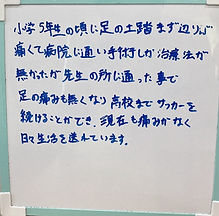 小学5年生の頃に足の土踏まず辺りが
痛くて病院に通い手術しか治療法が
無かったが先生の所に通った事で
足の痛みも無くなり高校までサッカーを
続けることができ、現在も痛みがなく
日々生活を送れています。